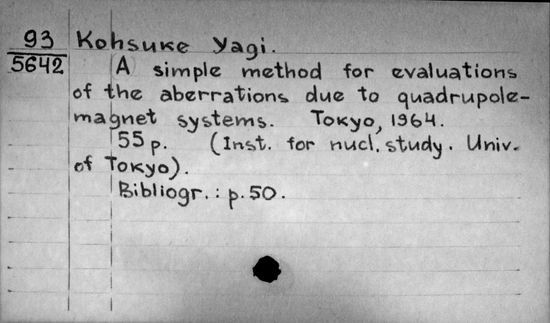 93 Kohsuke Yagi.
5642 A simple method for evaluations
of the aberrations due to quadrupole-
magnet systems. Tokyo, 1964.
55 p. (Inst. for nucl. study. Univ.
of Tokyo).
Bibliogr.: p. 50.